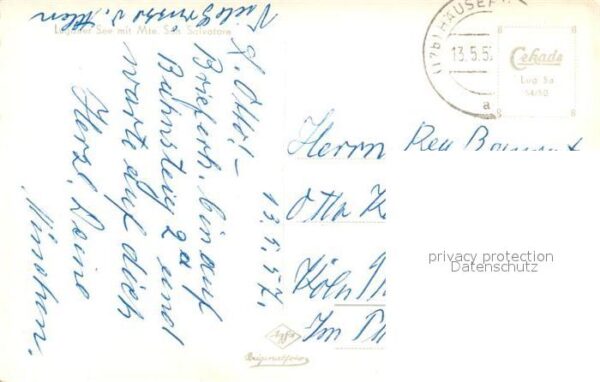 Luganer See mit Mte. San Salvatore
L. Otto! –
Brieferh. bin auf
Bahnsteig 2a und
warte auf dich
Herzl. Deine
Minchen.
13.5.57.
(17b) HAUSER
13.5.5
a
Cekade
Lug Sa
54/50
Herrn Reg
Otto K
Köln
Im Pa
privacy protection
Datenschutz
Agfa
Originalfoto